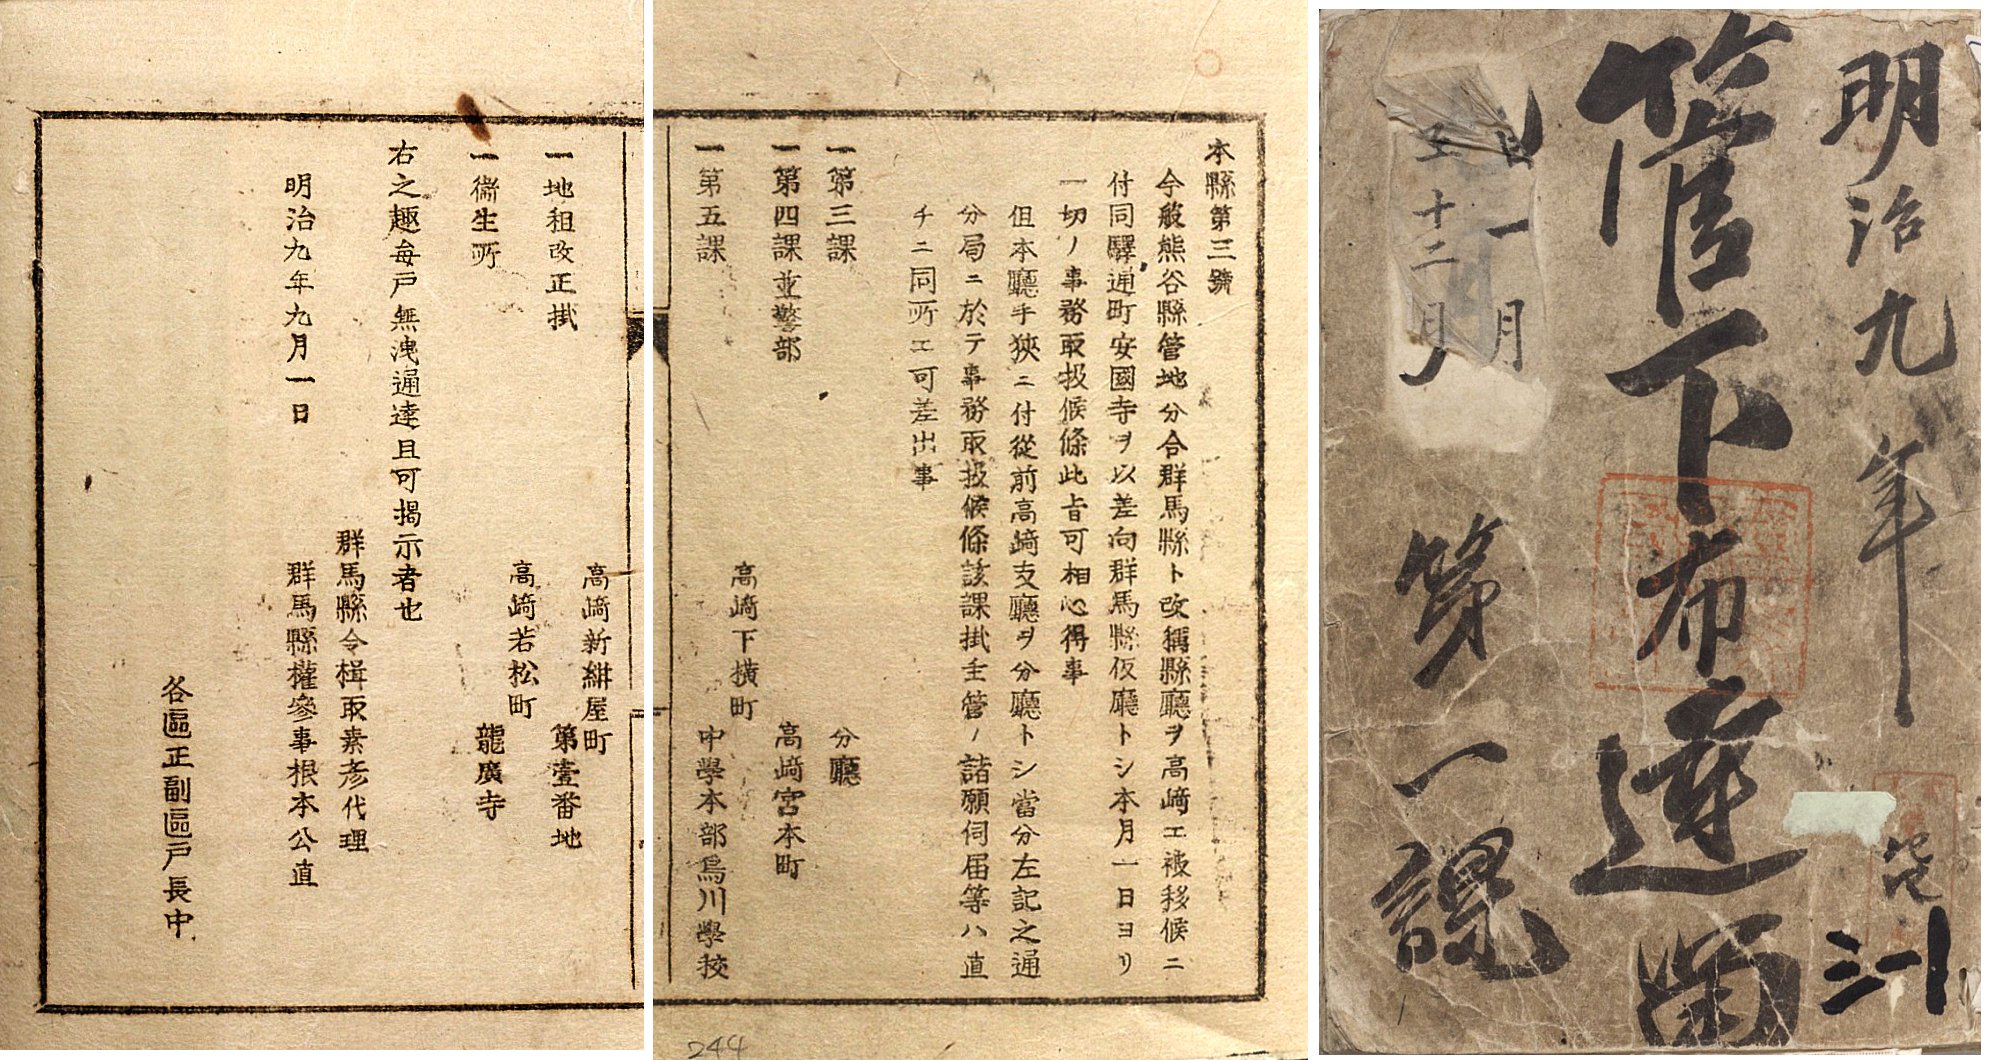 明治九年
管下布達留
第一課
九月
一月
十二月
本縣第三號
今般熊谷縣管地分合群馬縣ト改稱縣廳ヲ高﨑エ被移候ニ
付同驛通町安國寺ヲ以差向群馬縣仮廳トシ本月一日ヨリ
一切ノ事務取扱候條此旨可相心得事
但本廳手狹ニ付從前高﨑支廳ヲ分廳トシ當分左記之通
分局ニ於テ事務取扱候條該課掛主管ノ諸願伺届等ハ直
チニ同所エ可差出事
一第三課 分廳
一第四課並警部 高﨑宮本町
高﨑下横町
一第五課 中學本部烏川學校
244
高﨑新紺屋町
一地租改正掛 第壹番地
高﨑若松町
一衞生所 龍廣寺
右之趣毎戸無洩通達且可揭示者也
群馬縣令楫取素彦代理
明治九年九月一日 群馬縣權參事根本公直
各區正副區戸長中